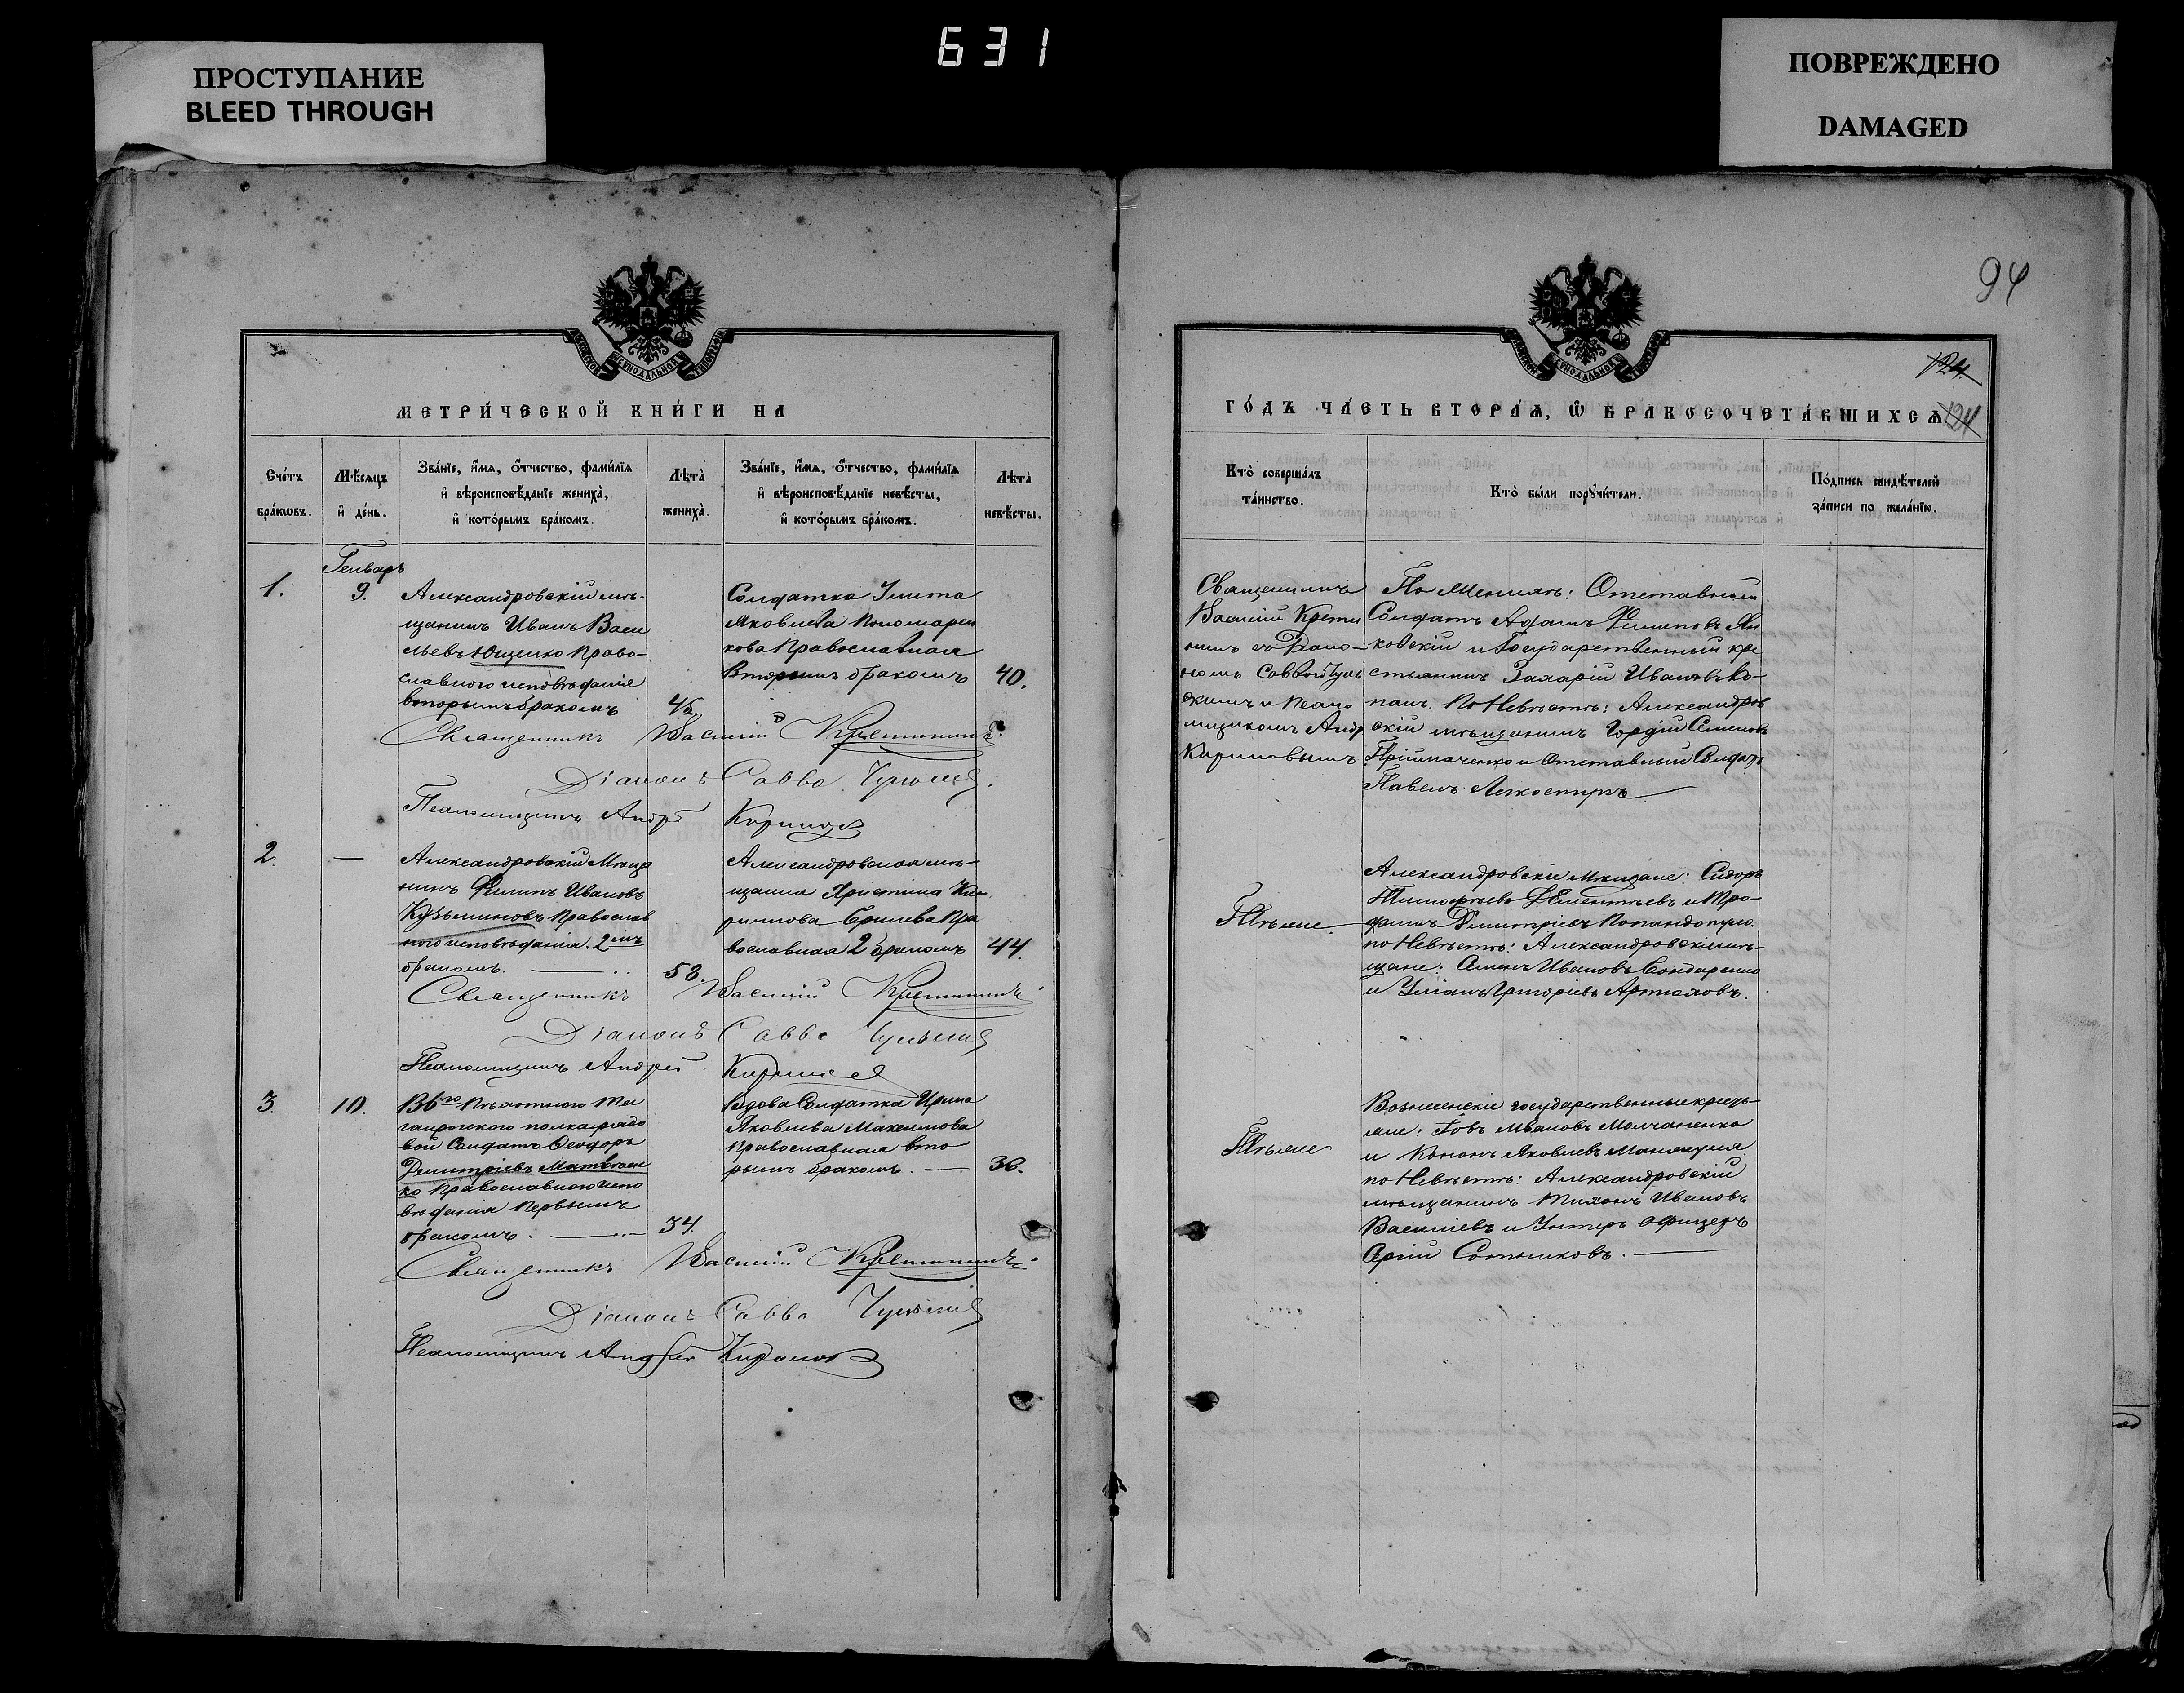 631
ПРОСТУПАНИЕ
BLEED THROUGH
ПОВРЕЖДЕНО
DAMAGED
94
МЕТРИ́ЧЕСКОЙ КНИ́ГИ НА
Сче́тъ бра́кωвъ.
Мѣ́сяцъ и҆ де́нь.
Зва́нїе, и҆́мѧ, ѻ҆́тчество, фами́лїѧ
и҆ вѣроисповѣ́данїе жениха̀,
и҆ кото́рымъ бра́комъ.
Лѣта̀ жениха̀.
Зва́нїе, и҆́мѧ, ѻ҆́тчество, фами́лїѧ
и҆ вѣроисповѣ́данїе невѣ́сты,
и҆ кото́рымъ бра́комъ.
Лѣта̀ невѣ́сты.
Генварь
1.
9.
Александровскій мѣ-
щанинъ Иванъ Васи
льевъ Ющенко Право-
славного исповѣданія
вторымъ бракомъ
45
Солдатка Улита
Яковлева Пономарен
кова Православная
Вторымъ бракомъ
40.
Священникъ Василій Кретининъ.
Діаконъ Савва
Псаломщикъ Андрей Кириловъ
2.
—
Александровскій Мѣща
нинъ Филипъ Ивановъ
Кузьминовъ Православ
ного исповѣданія. 2мъ
бракомъ.
58.
Александровская мѣ-
щанка Христина Ки-
рилова Православная 2 бракомъ
44.
Священникъ Василій Кретининъ
Діаконъ Савва
Псаломщикъ Андрей Кириловъ
3.
10.
В 6го Пѣхотного Та
рядо
вой Солдатъ Феодоръ
Димитріевъ Матвѣен
ко Православного испо
вѣданія Первымъ
бракомъ.
34.
Вдова Солдатка Ирина
Яковлева Максимова
Православная вто
рымъ бракомъ. —
36.
Священникъ Василій Кретининъ
Діаконъ Савва
Псаломщикъ Андрей Кириловъ
ГО́ДЪ ЧА́СТЬ ВТОРА́Ѧ, Ѡ҆ БРАКОСОЧЕТА́ВШИХСѦ
124.
124
Кто̀ соверша́лъ
та́инство.
Кто̀ бы́ли порꙋчи́тели.
По́дпись свидѣ́телей
за́писи по жела́нїю.
Священникъ
Василій Крети
нинъ съ Діако-
номъ Саввою
и Псало
мщикомъ Андр
Кириловымъ
По Женихѣ: Отставный
Солдатъ Адамъ Филиповъ Ян
ковскій и Государственный кре
стьянинъ Захарій Ивановъ Ко-
панъ. По Невѣстѣ: Александров
скій мѣщанинъ Гордій Семеновъ
Пріймаченко и Отставный Солдатъ
Павелъ
Тѣже.
Александровскіе Мѣщане: Сидоръ
Тимофѣевъ и Тро-
фимъ Димитріевъ Попандопуло.
по Невѣстѣ: Александровскіе мѣ-
щане: Семенъ Ивановъ Бондаренко
и Уліанъ Григоріевъ Артюховъ.
Тѣже
Вознесенскіе государственные кресть-
яне: Іовъ Ивановъ Молчаненко
и Кононъ Яковлевъ
по Невѣстѣ: Александровскій
мѣщанинъ Тихонъ Ивановъ
Василіевъ и Унтеръ Офицеръ
Сергій Сотниковъ. —